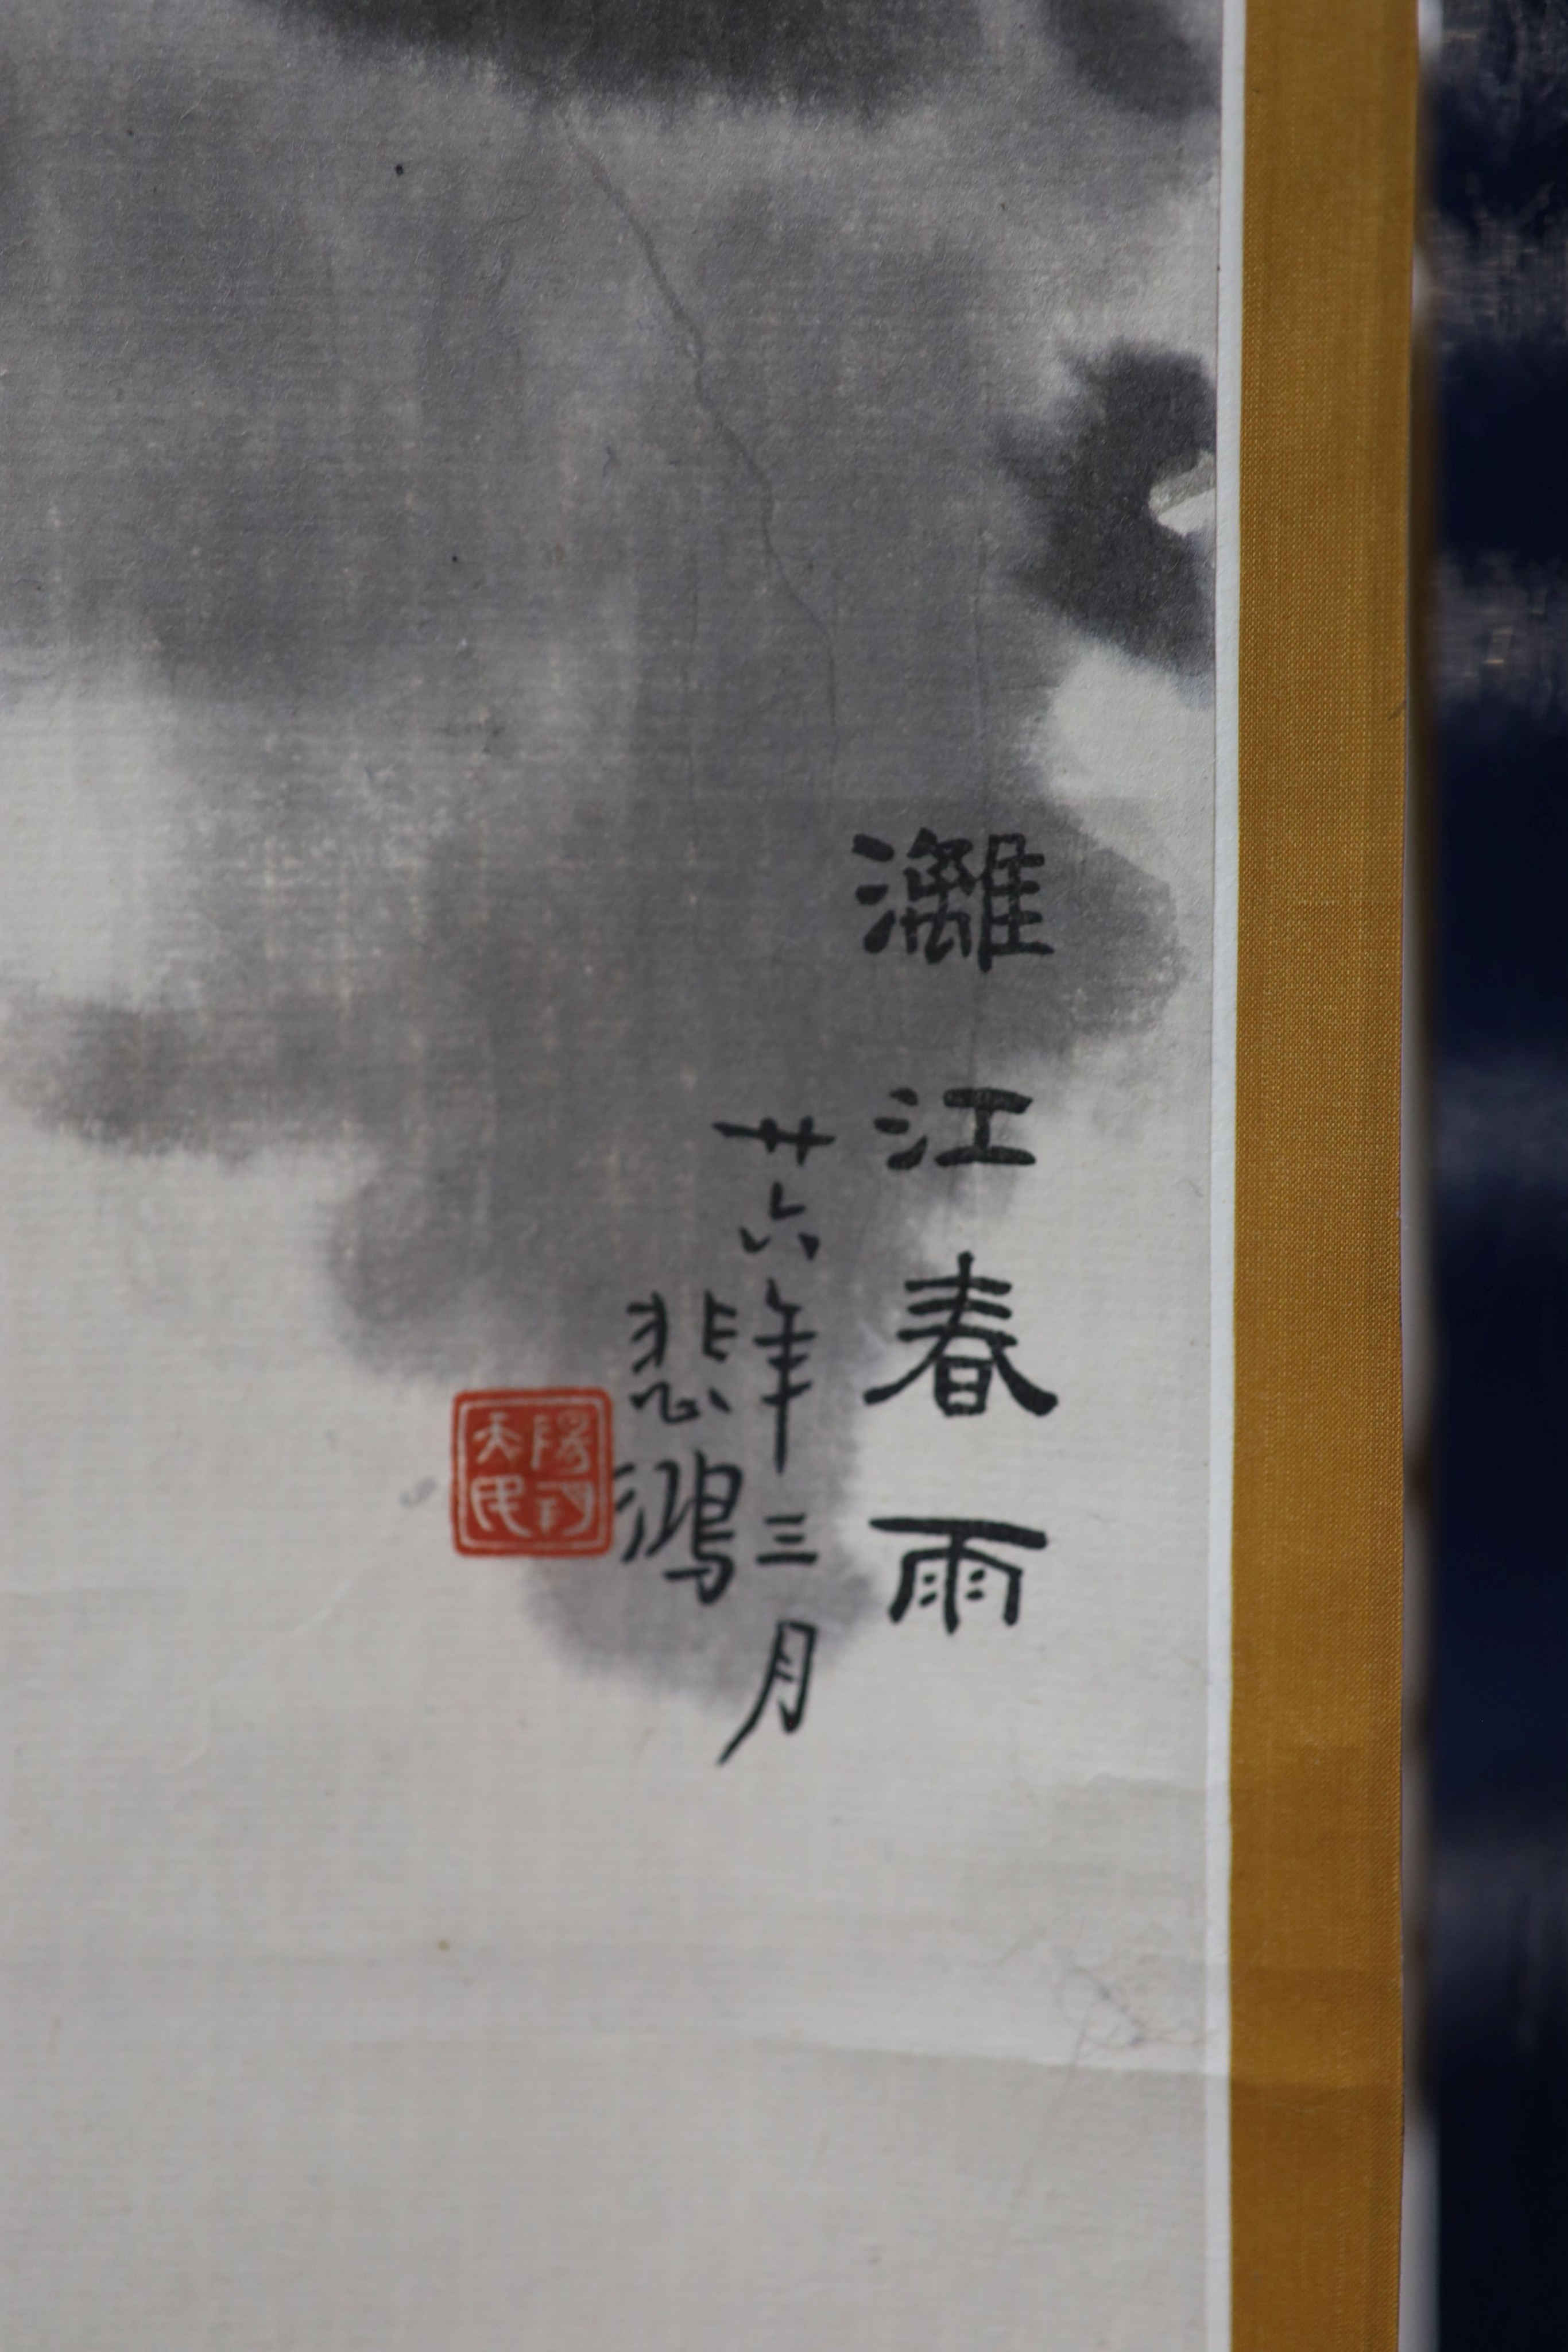 灕江春雨
廿六年三月
悲鴻
陽朔
天民